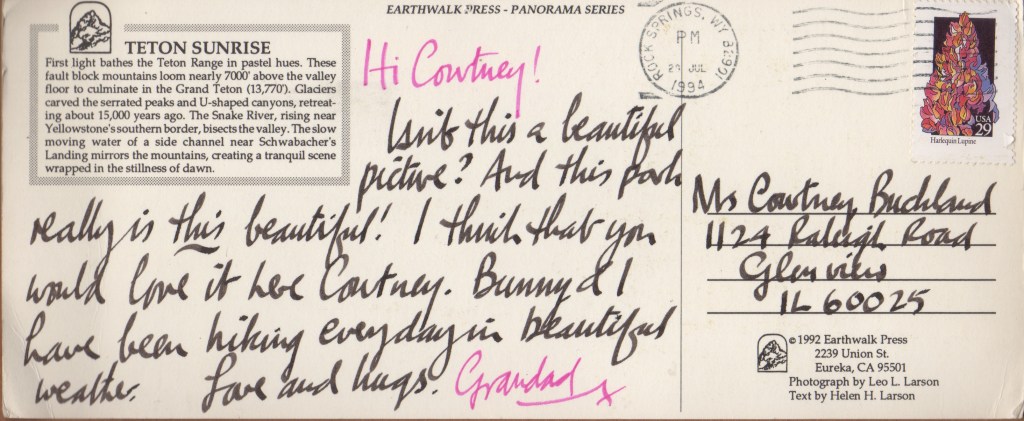 EARTHWALK PRESS - PANORAMA SERIES
TETON SUNRISE
First light bathes the Teton Range in pastel hues. These
fault block mountains loom nearly 7000' above the valley
floor to culminate in the Grand Teton (13,770'). Glaciers
carved the serrated peaks and U-shaped canyons, retreat-
ing about 15,000 years ago. The Snake River, rising near
Yellowstone's southern border, bisects the valley. The slow
moving water of a side channel near Schwabacher's
Landing mirrors the mountains, creating a tranquil scene
wrapped in the stillness of dawn.
Hi Courtney!
Isn't this a beautiful
picture? And this park
really is this beautiful! I think that you
would love it here Courtney. Bunny & I
have been hiking everyday in beautiful
weather. Love and hugs. Grandad x
ROCK SPRINGS, WY 82901
PM
JUL
1994
USA
29
Harlequin Lupine
Ms Courtney Buckland
1124 Raleigh Road
Glenview
IL 60025
© 1992 Earthwalk Press
2239 Union St.
Eureka, CA 95501
Photograph by Leo L. Larson
Text by Helen H. Larson